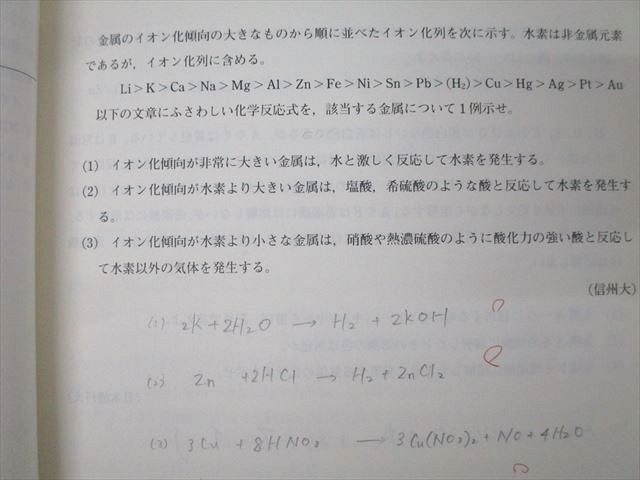 金属のイオン化傾向の大きなものから順に並べたイオン化列を次に示す。水素は非金属元素
であるが，イオン化列に含める。
Li＞K＞Ca＞Na＞Mg＞Al＞Zn＞Fe＞Ni＞Sn＞Pb＞(H₂)＞Cu＞Hg＞Ag＞Pt＞Au
以下の文章にふさわしい化学反応式を，該当する金属について1例示せ。
(1) イオン化傾向が非常に大きい金属は，水と激しく反応して水素を発生する。
(2) イオン化傾向が水素より大きい金属は，塩酸，希硫酸のような酸と反応して水素を発生す
る。
(3) イオン化傾向が水素より小さな金属は，硝酸や熱濃硫酸のように酸化力の強い酸と反応し
て水素以外の気体を発生する。
(信州大)
(1) 2K + 2H₂O → H₂ + 2KOH
(2) Zn + 2HCl → H₂ + ZnCl₂
(3) 3Cu + 8HNO₃ → 3Cu(NO₃)₂ + NO + 4H₂O